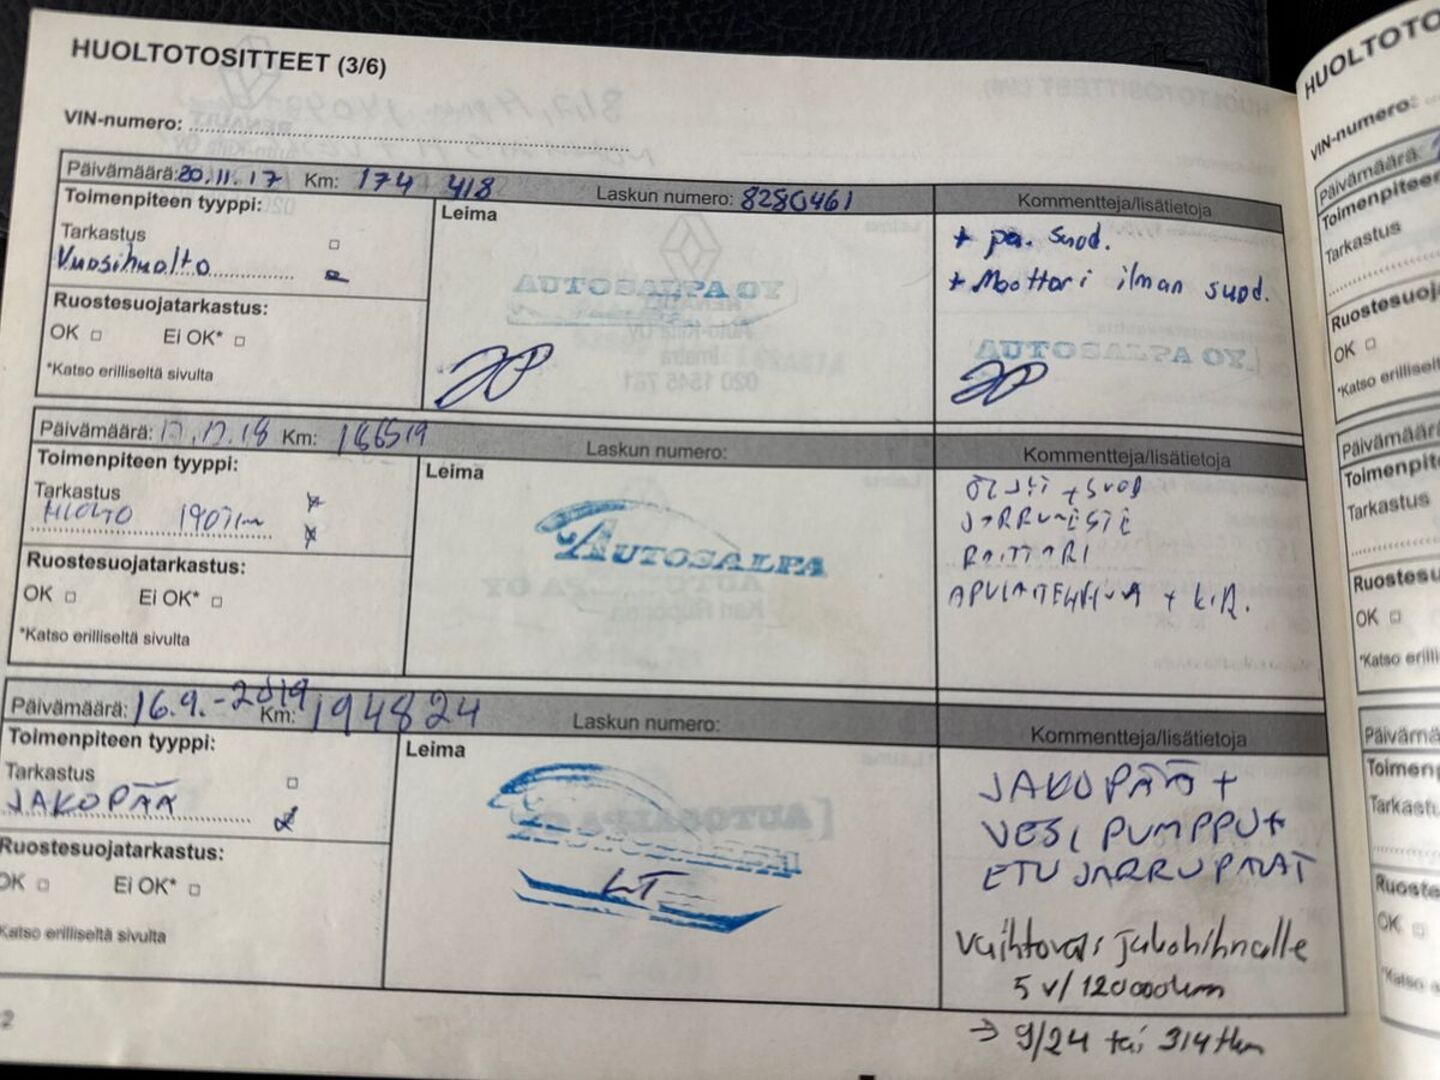 HUOLTOTOSITTEET (3/6)
VIN-numero:
Päivämäärä: 20.11.17 Km: 174 418 Laskun numero: 8280461 Kommentteja/lisätietoja
Toimenpiteen tyyppi:
Leima
Tarkastus
Vuosihuolto
+ pa. suod.
+ Moottori ilman suod.
Ruostesuojatarkastus:
OK Ei OK*
*Katso erilliseltä sivulta
AUTOSALPA OY
AUTOSALPA OY
Päivämäärä: 12.12.18 Km: 186519 Laskun numero: Kommentteja/lisätietoja
Toimenpiteen tyyppi:
Leima
Tarkastus
HUOLTO 190tkm
ÖLJYT + SUOD
JARRUNESTE
RAITTARI
+ KIR.
Ruostesuojatarkastus:
OK Ei OK*
*Katso erilliseltä sivulta
AUTOSALPA
Päivämäärä: 16.9.-2019 Km: 194824 Laskun numero: Kommentteja/lisätietoja
Toimenpiteen tyyppi:
Leima
Tarkastus
JAKOPÄÄ
JAKOPÄÄ +
VESI PUMPPU +
ETU JARRUPALAT
Vaihtoväli jakohihnalle
5 v/120000km
→ 9/24 tai 314tkm
Ruostesuojatarkastus:
OK Ei OK*
Katso erilliseltä sivulta
AUTOSALPA
2
HUOLTOTO
VIN-numero:
Päivämäärä
Toimenpiteen
Tarkastus
Ruostesuoj
OK
*Katso erilliselt
Päivämäär
Toimenpit
Tarkastus
Ruostesu
OK
*Katso erilli
Päivämä
Toimen
Tarkast
Ruoste
OK
*Katso e